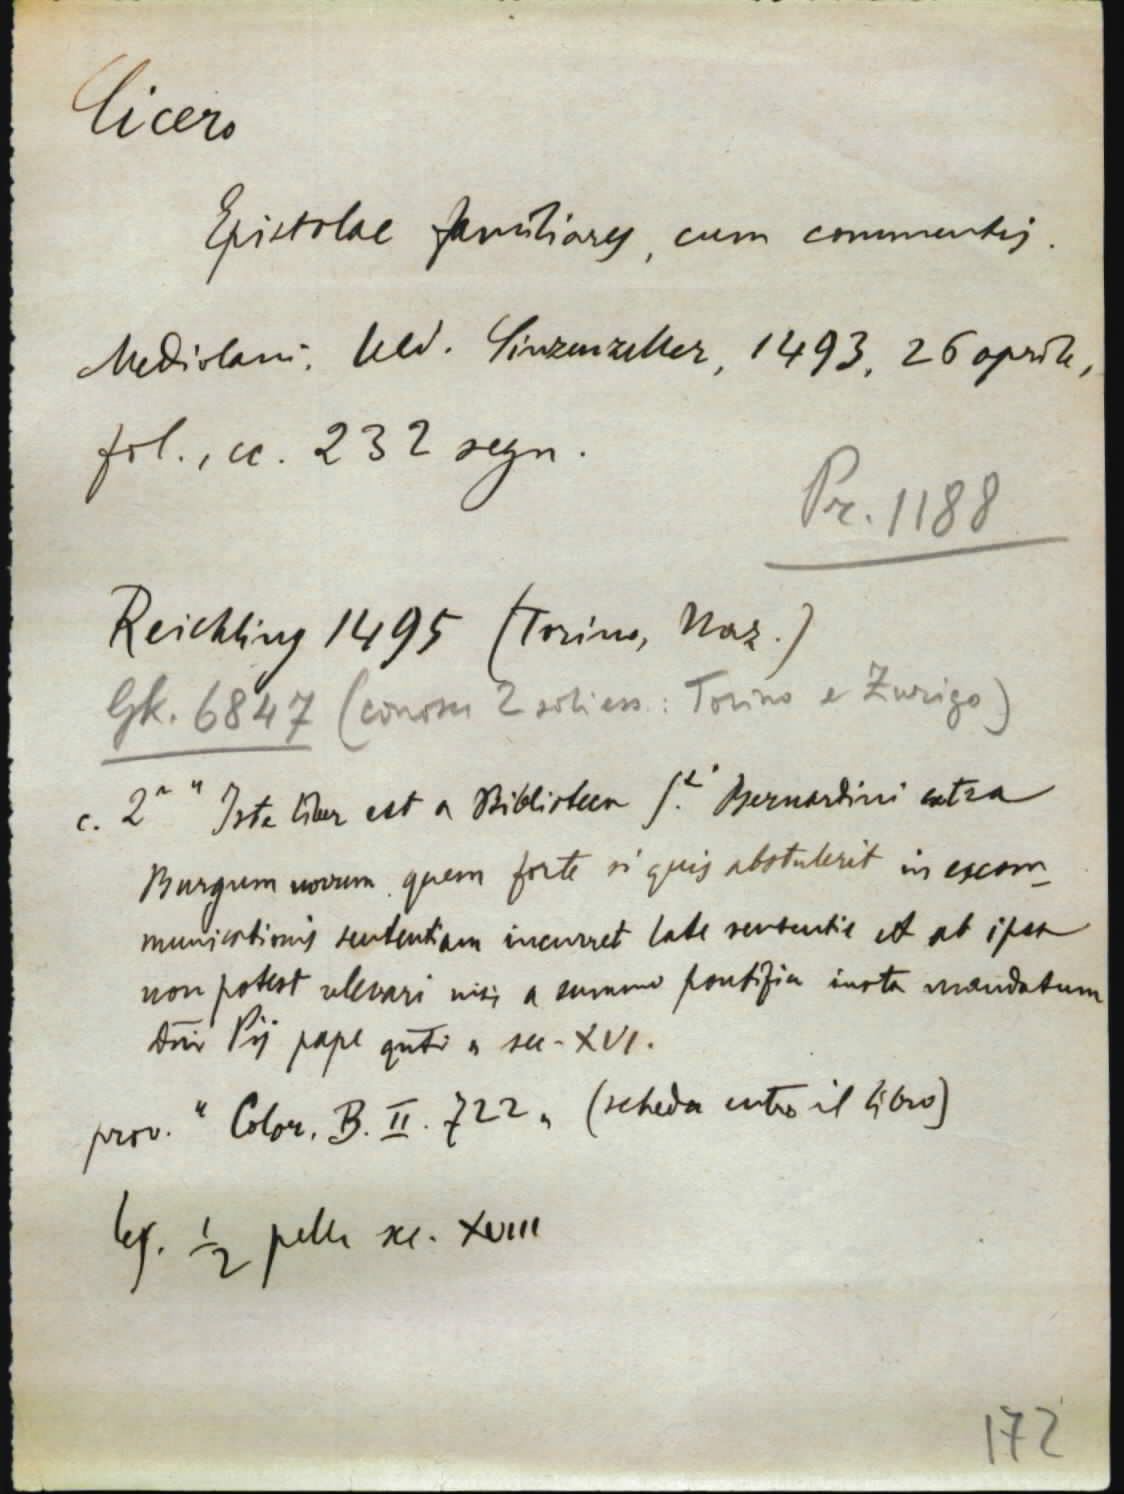 Cicero
Epistolae familiares, cum commentis.
Mediolani, Uld. Sinzenzeller, 1493, 26 aprile,
fol., cc. 232 segn.
Pr. 1188
Reichling 1495 (Torino, Naz.)
Gk. 6847 (conosce 2 soli ess.: Torino e Zurigo)
c. 2ª " Iste liber est a Biblioteca S.ti Bernardini extra
Burgum novum quem forte si quis abstulerit in excom
municationis sententiam incurret late sententie et ab ipsa
non potest relevari nisi a summo pontifice iusta mandatum
Dni Pij pape qnti " sec. XVI.
prov. " Color. B. II. 722 " (scheda entro il libro)
leg. 1/2 pelle sec. XVIII
172